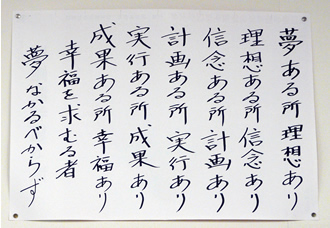 夢ある所理想あり
理想ある所信念あり
信念ある所計画あり
計画ある所実行あり
実行ある所成果あり
成果ある所幸福あり
幸福を求むる者
夢なかるべからず